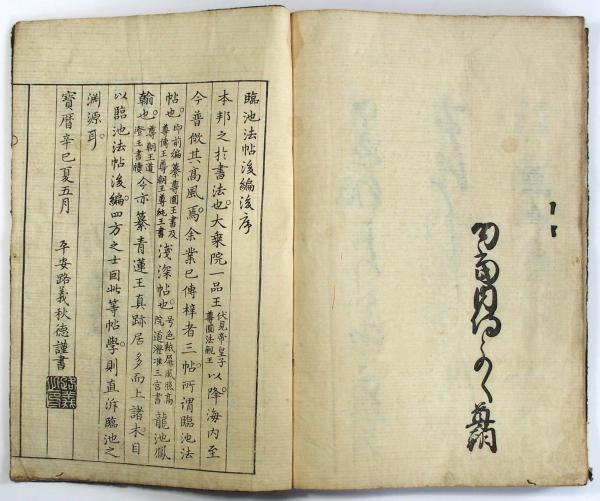 臨池法帖後編後序
本邦之於書法也。大乗院一品王伏見帝皇子尊圓法親王以降海内至
今普倣其高風焉。余業已傳梓者三帖。所謂臨池法
帖也。印前編纂尊圓王書及尊傳王尊朝王尊純王書淺深帖也。号色紙屏風院道澄准三宮書龍池鳳
翰也。尊朝王道澄王書牘今亦纂青蓮王真跡居多而上諸木目
以臨池法帖後編四方之士因此等帖學則直泝臨池之
淵源耳。
寶暦辛巳夏五月
平安路義秋德謹書